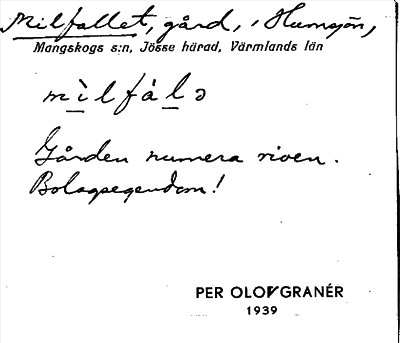 Milfallet, gård, i Humsjön,
Mangskogs s:n, Jösse härad, Värmlands län
mìlfálə
Gården numera riven.
Bolagsegendom!
PER OLOF GRANÉR
1939